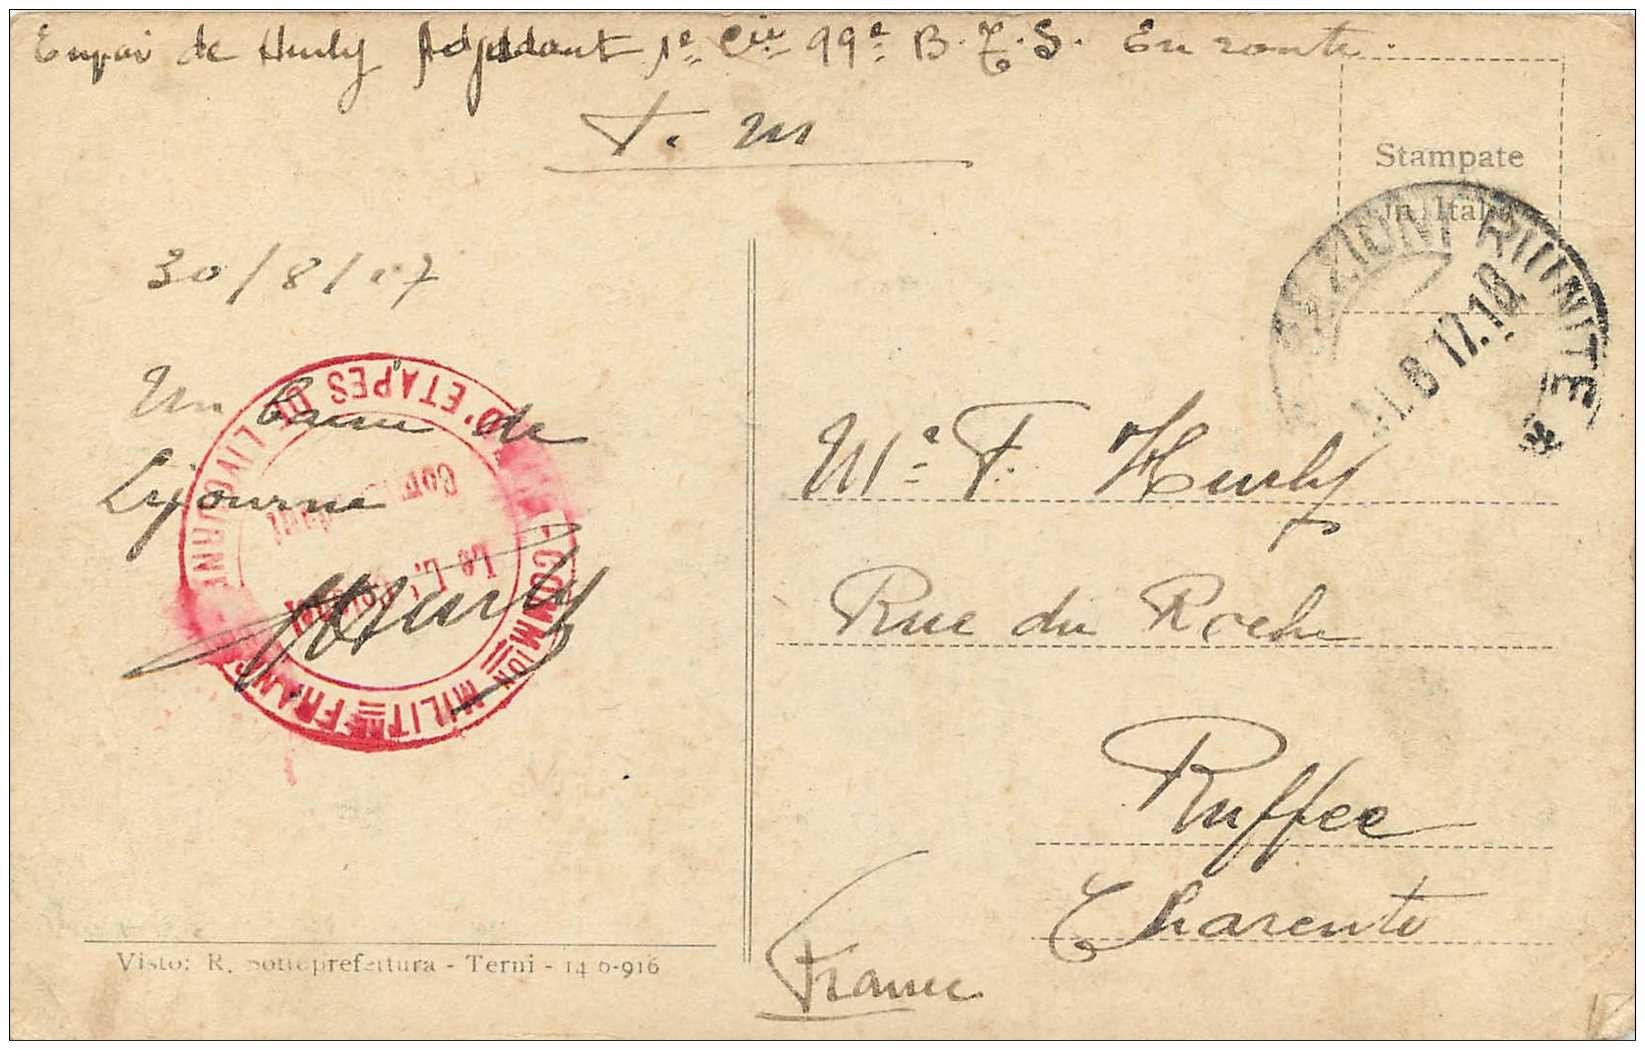 Envoi de Hurly Adjudant 1e Cie 99e B.T.S. En route.
F. M
Stampate
in Italia
RIUNITE
8 17.18
30/8/17
Un baiser de
Lijourne
Hurly
COMMION MILITRE FRANÇ
D'ETAPES DE LIVOURNE
Le Lt Colonel
Me F. Hurly
Rue du Roche
Ruffec
Charente
France
Visto: R. Sottoprefettura - Terni - 14 6-916